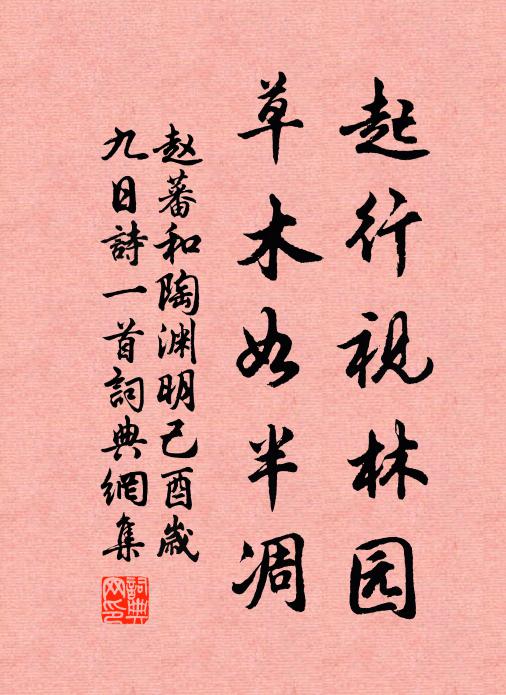 起行视林园
草木如半凋
赵蕃和陶渊明己酉岁
九日詩一首詞典網集
詞典網印